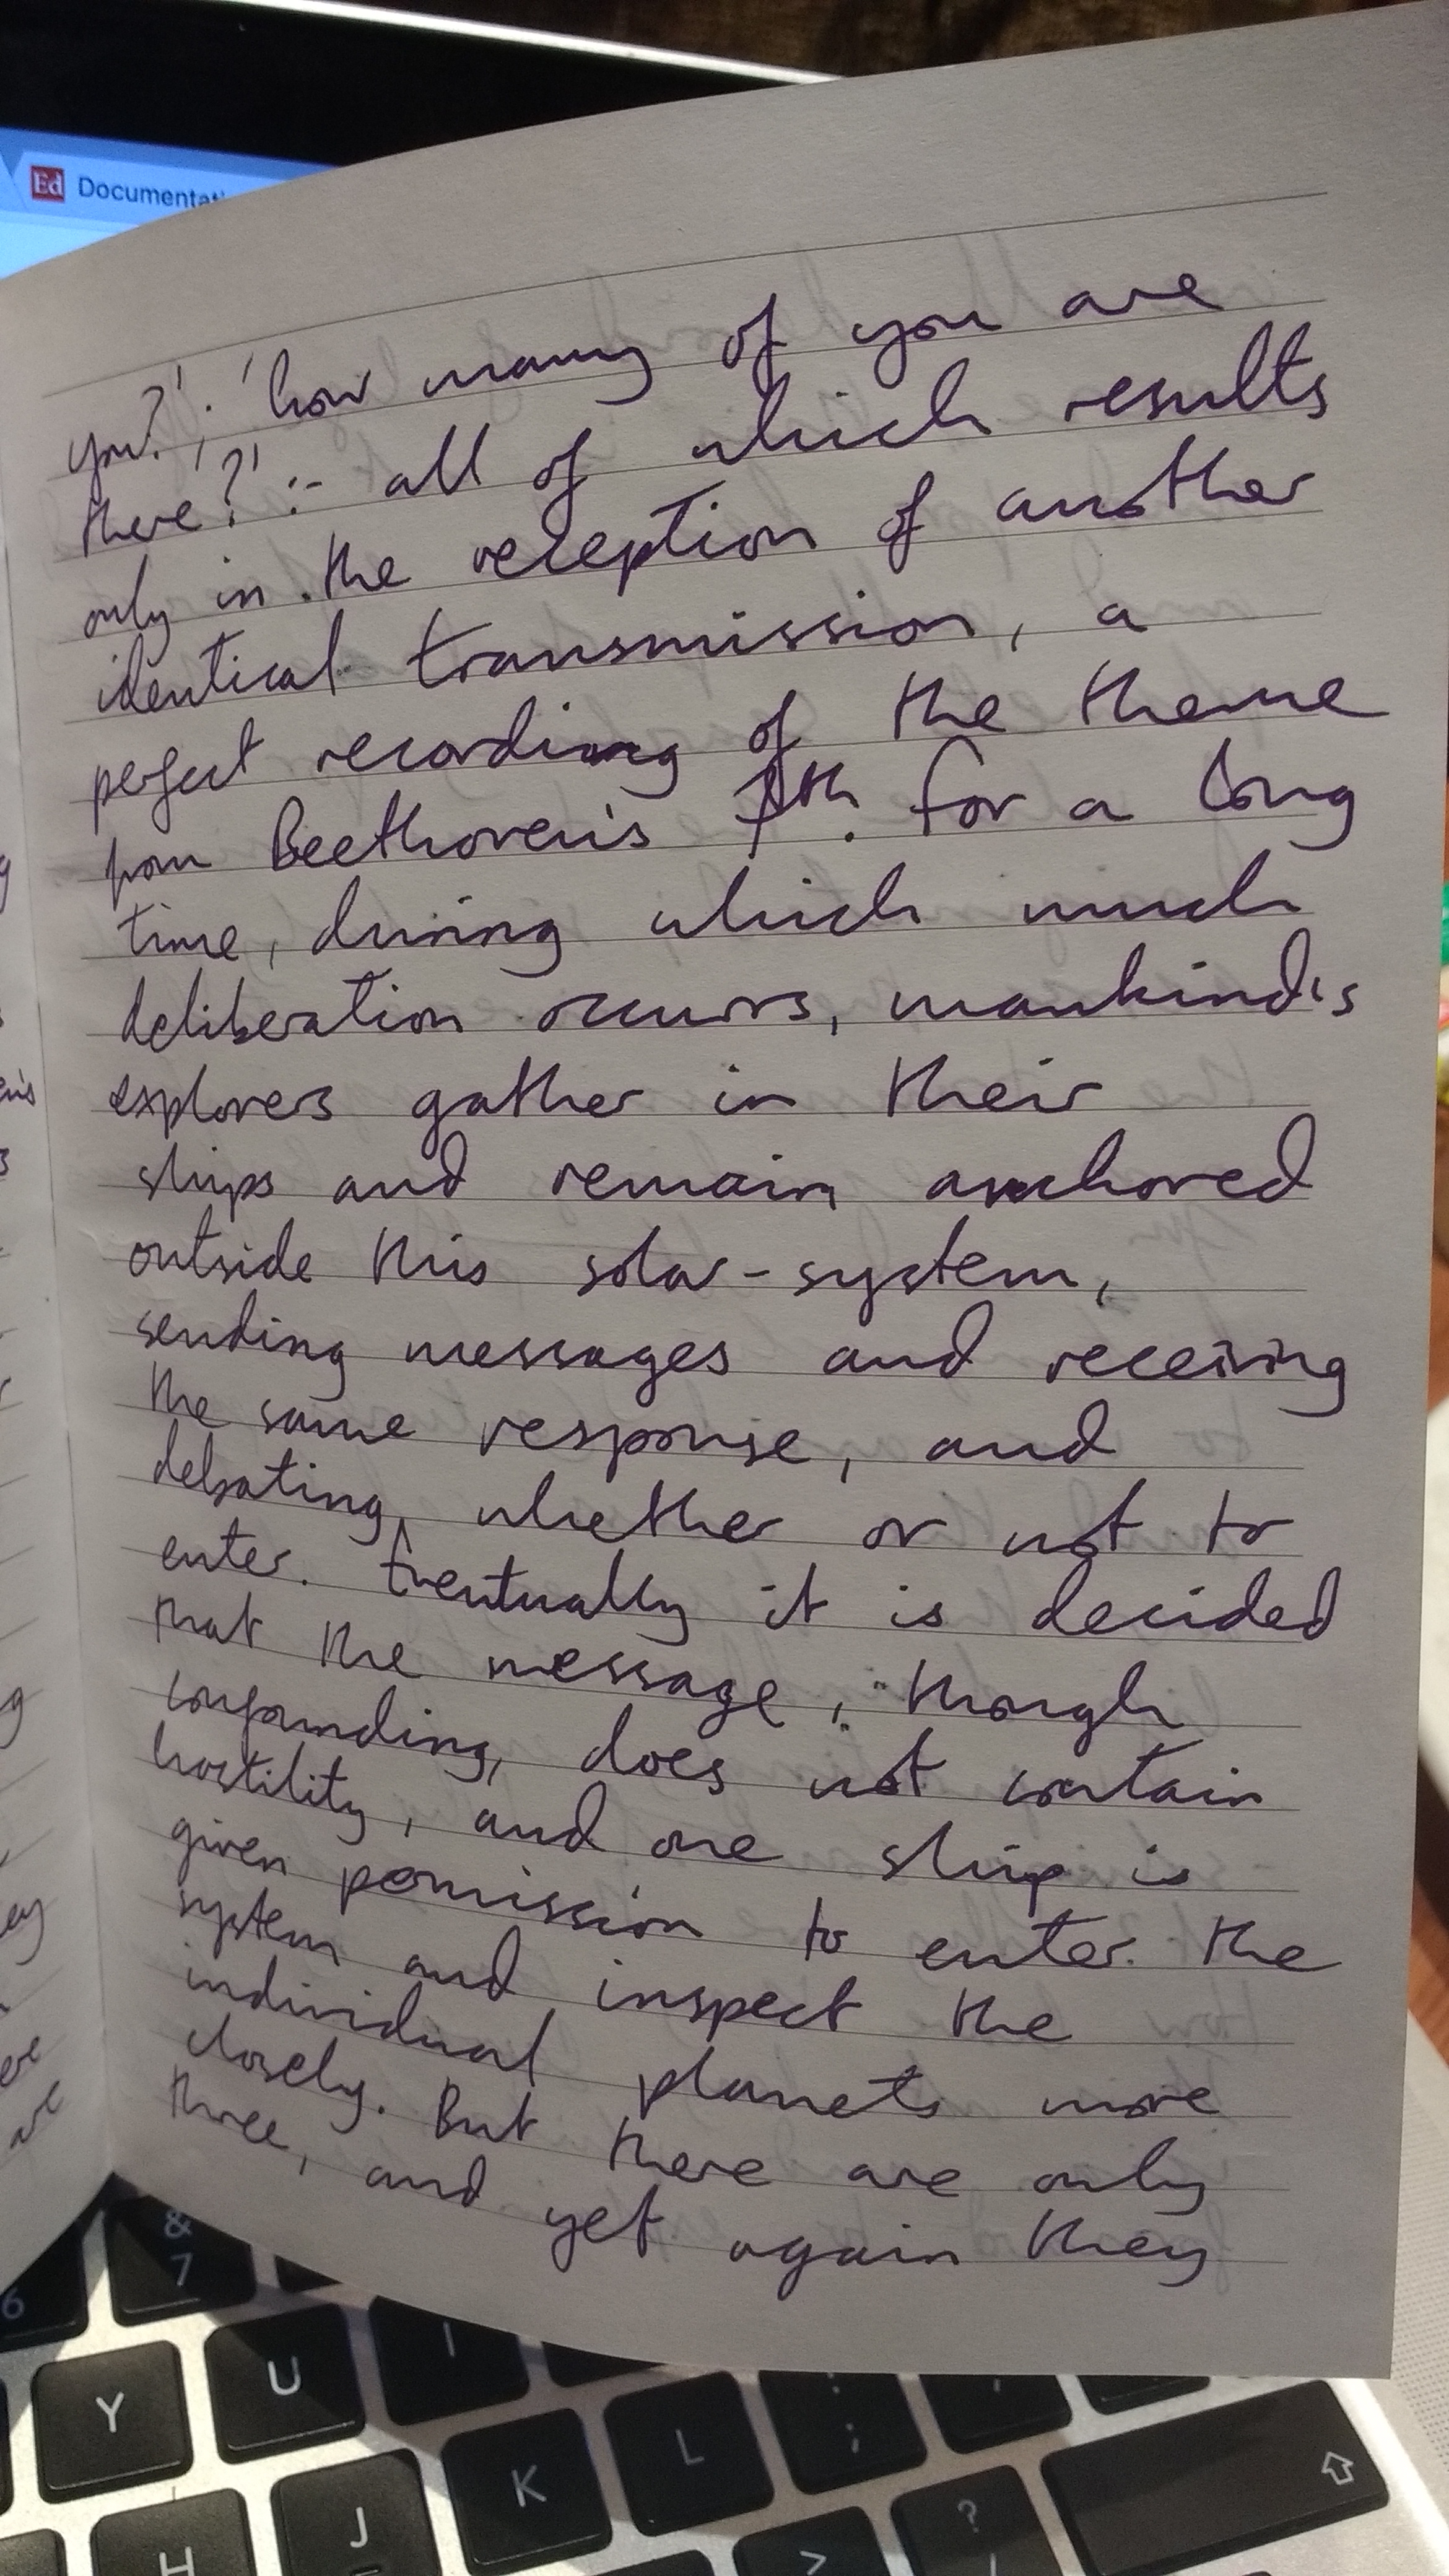 Ed Documentati
you?'; 'how many of you are
there?' :- all of which results
only in the reception of another
identical transmission, a
perfect recording of the theme
from Beethoven's for a long
time, during which much
deliberation occurs, mankind's
explorers gather in their
ships and remain anchored
outside this solar-system,
sending messages and receiving
the same response, and
debating whether or not to
enter. Eventually it is decided
that the message, though
confounding, does not contain
hostility, and one ship is
given permission to enter the
system and inspect the
individual planets more
closely. But there are only
three, and yet again they
&
6 7
Y U I
H J K L : ;
> ? /